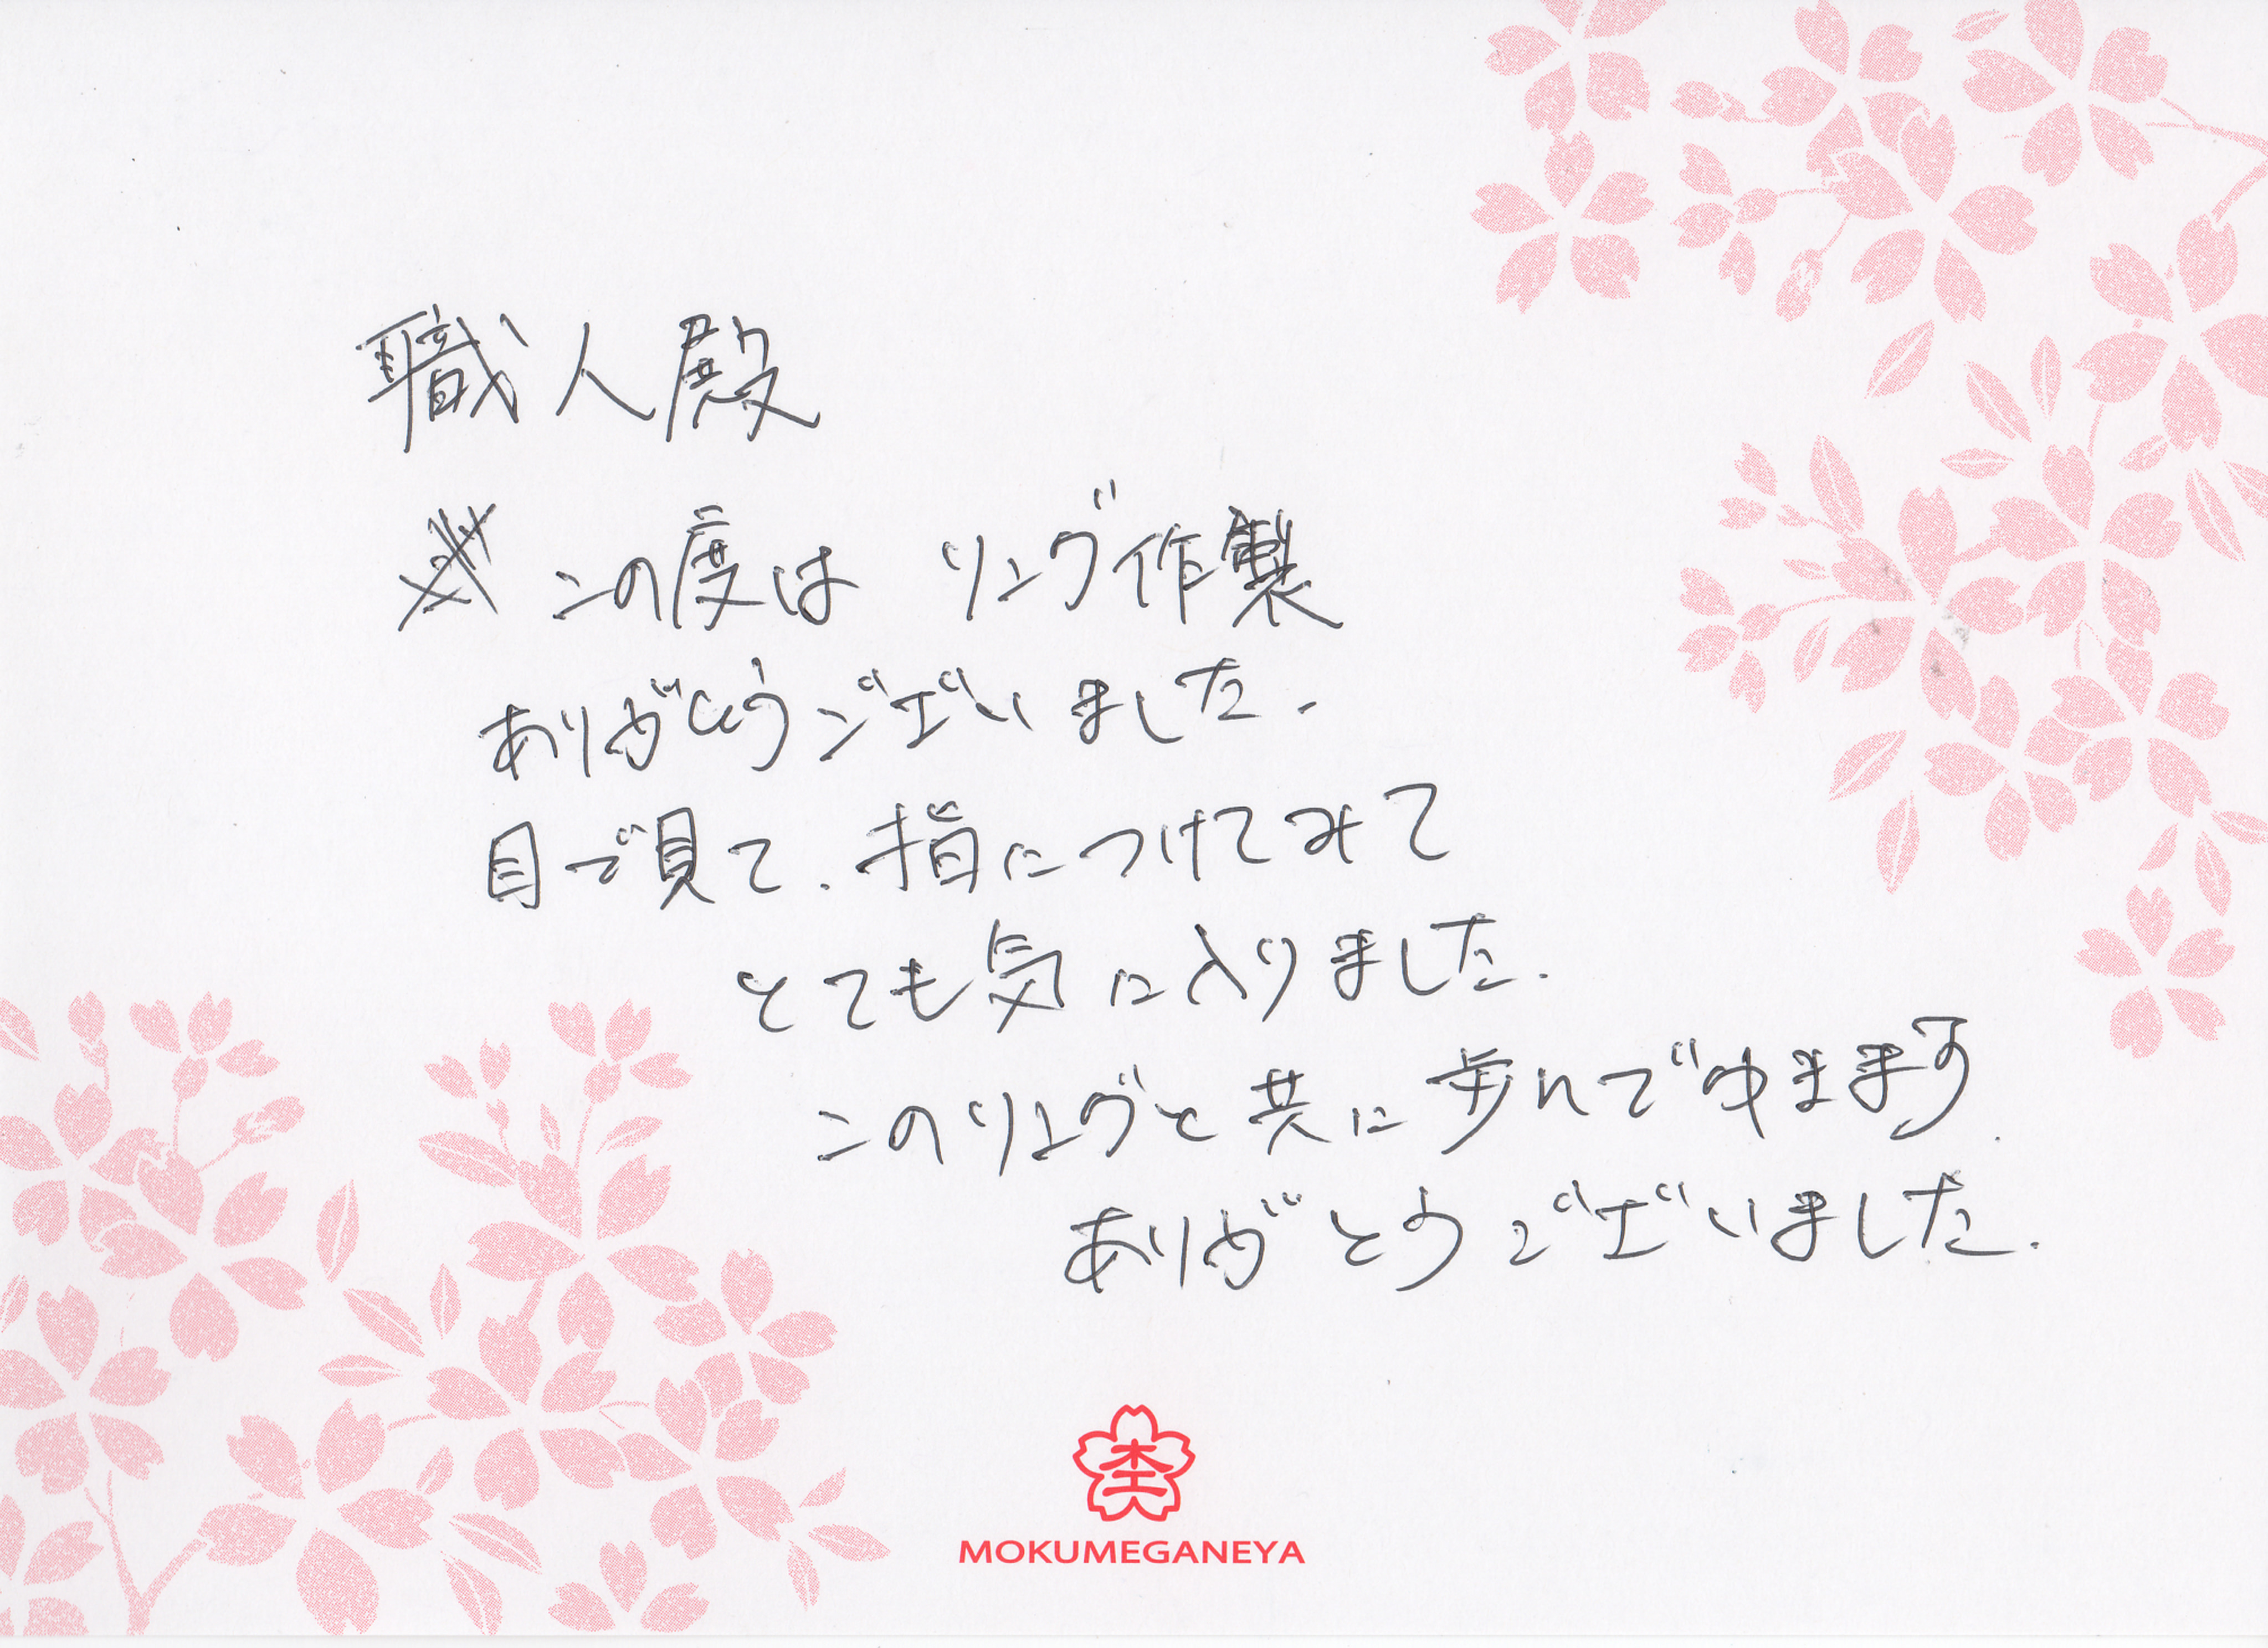 職人殿
この度は リング作製
ありがとうございました.
目で見て. 指につけてみて
とても気に入りました.
このリングと共に歩んでゆきます.
ありがとうございました.
杢
MOKUMEGANEYA